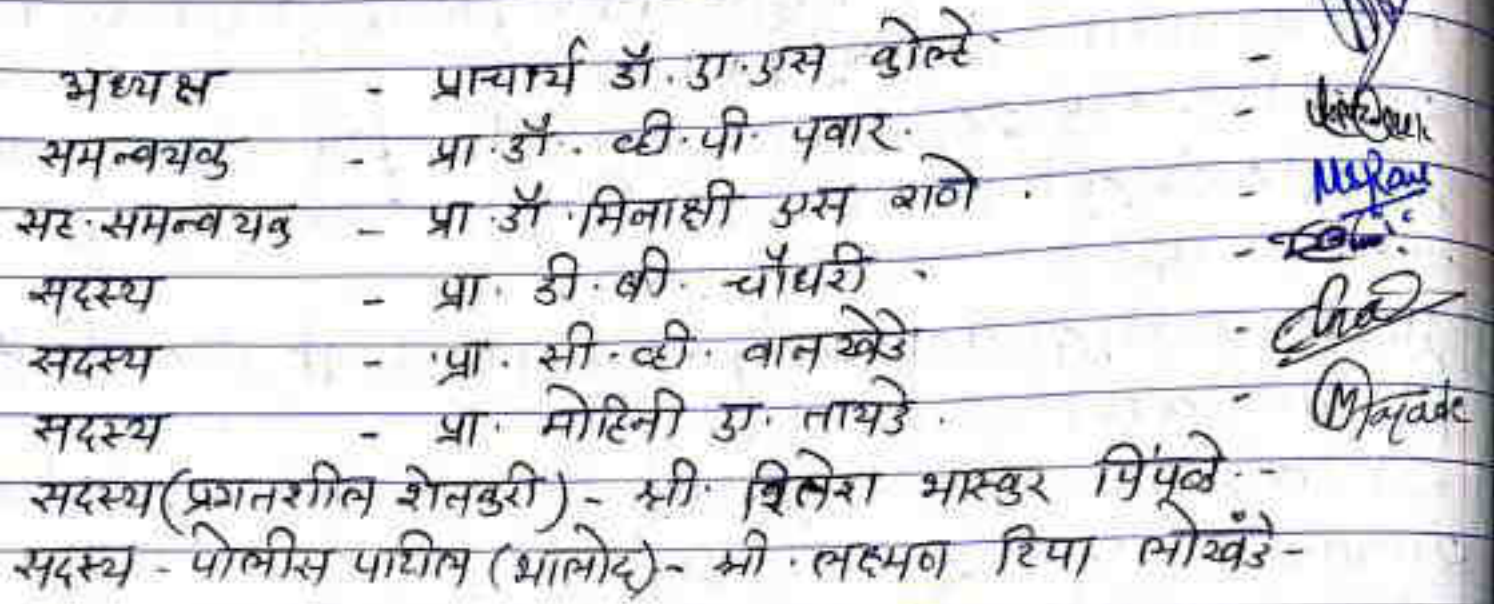 अध्यक्ष - प्राचार्य डॉ. ए. एस कोल्हे -
समन्वयक - प्रा. डॉ. व्ही. पी. पवार. -
सह. समन्वयक - प्रा. डॉ. मिनाक्षी एस वाणे. -
सदस्य - प्रा. डी. बी. चौधरी. -
सदस्य - प्रा. सी. व्ही. वानखेडे -
सदस्य - प्रा. मोहिनी ए. तायडे. -
सदस्य (प्रगतशील शेतकरी) - श्री. भास्कर पिंपळे -
सदस्य - पोलीस पाटील (भालोद) - श्री. लक्ष्मण लोखंडे -